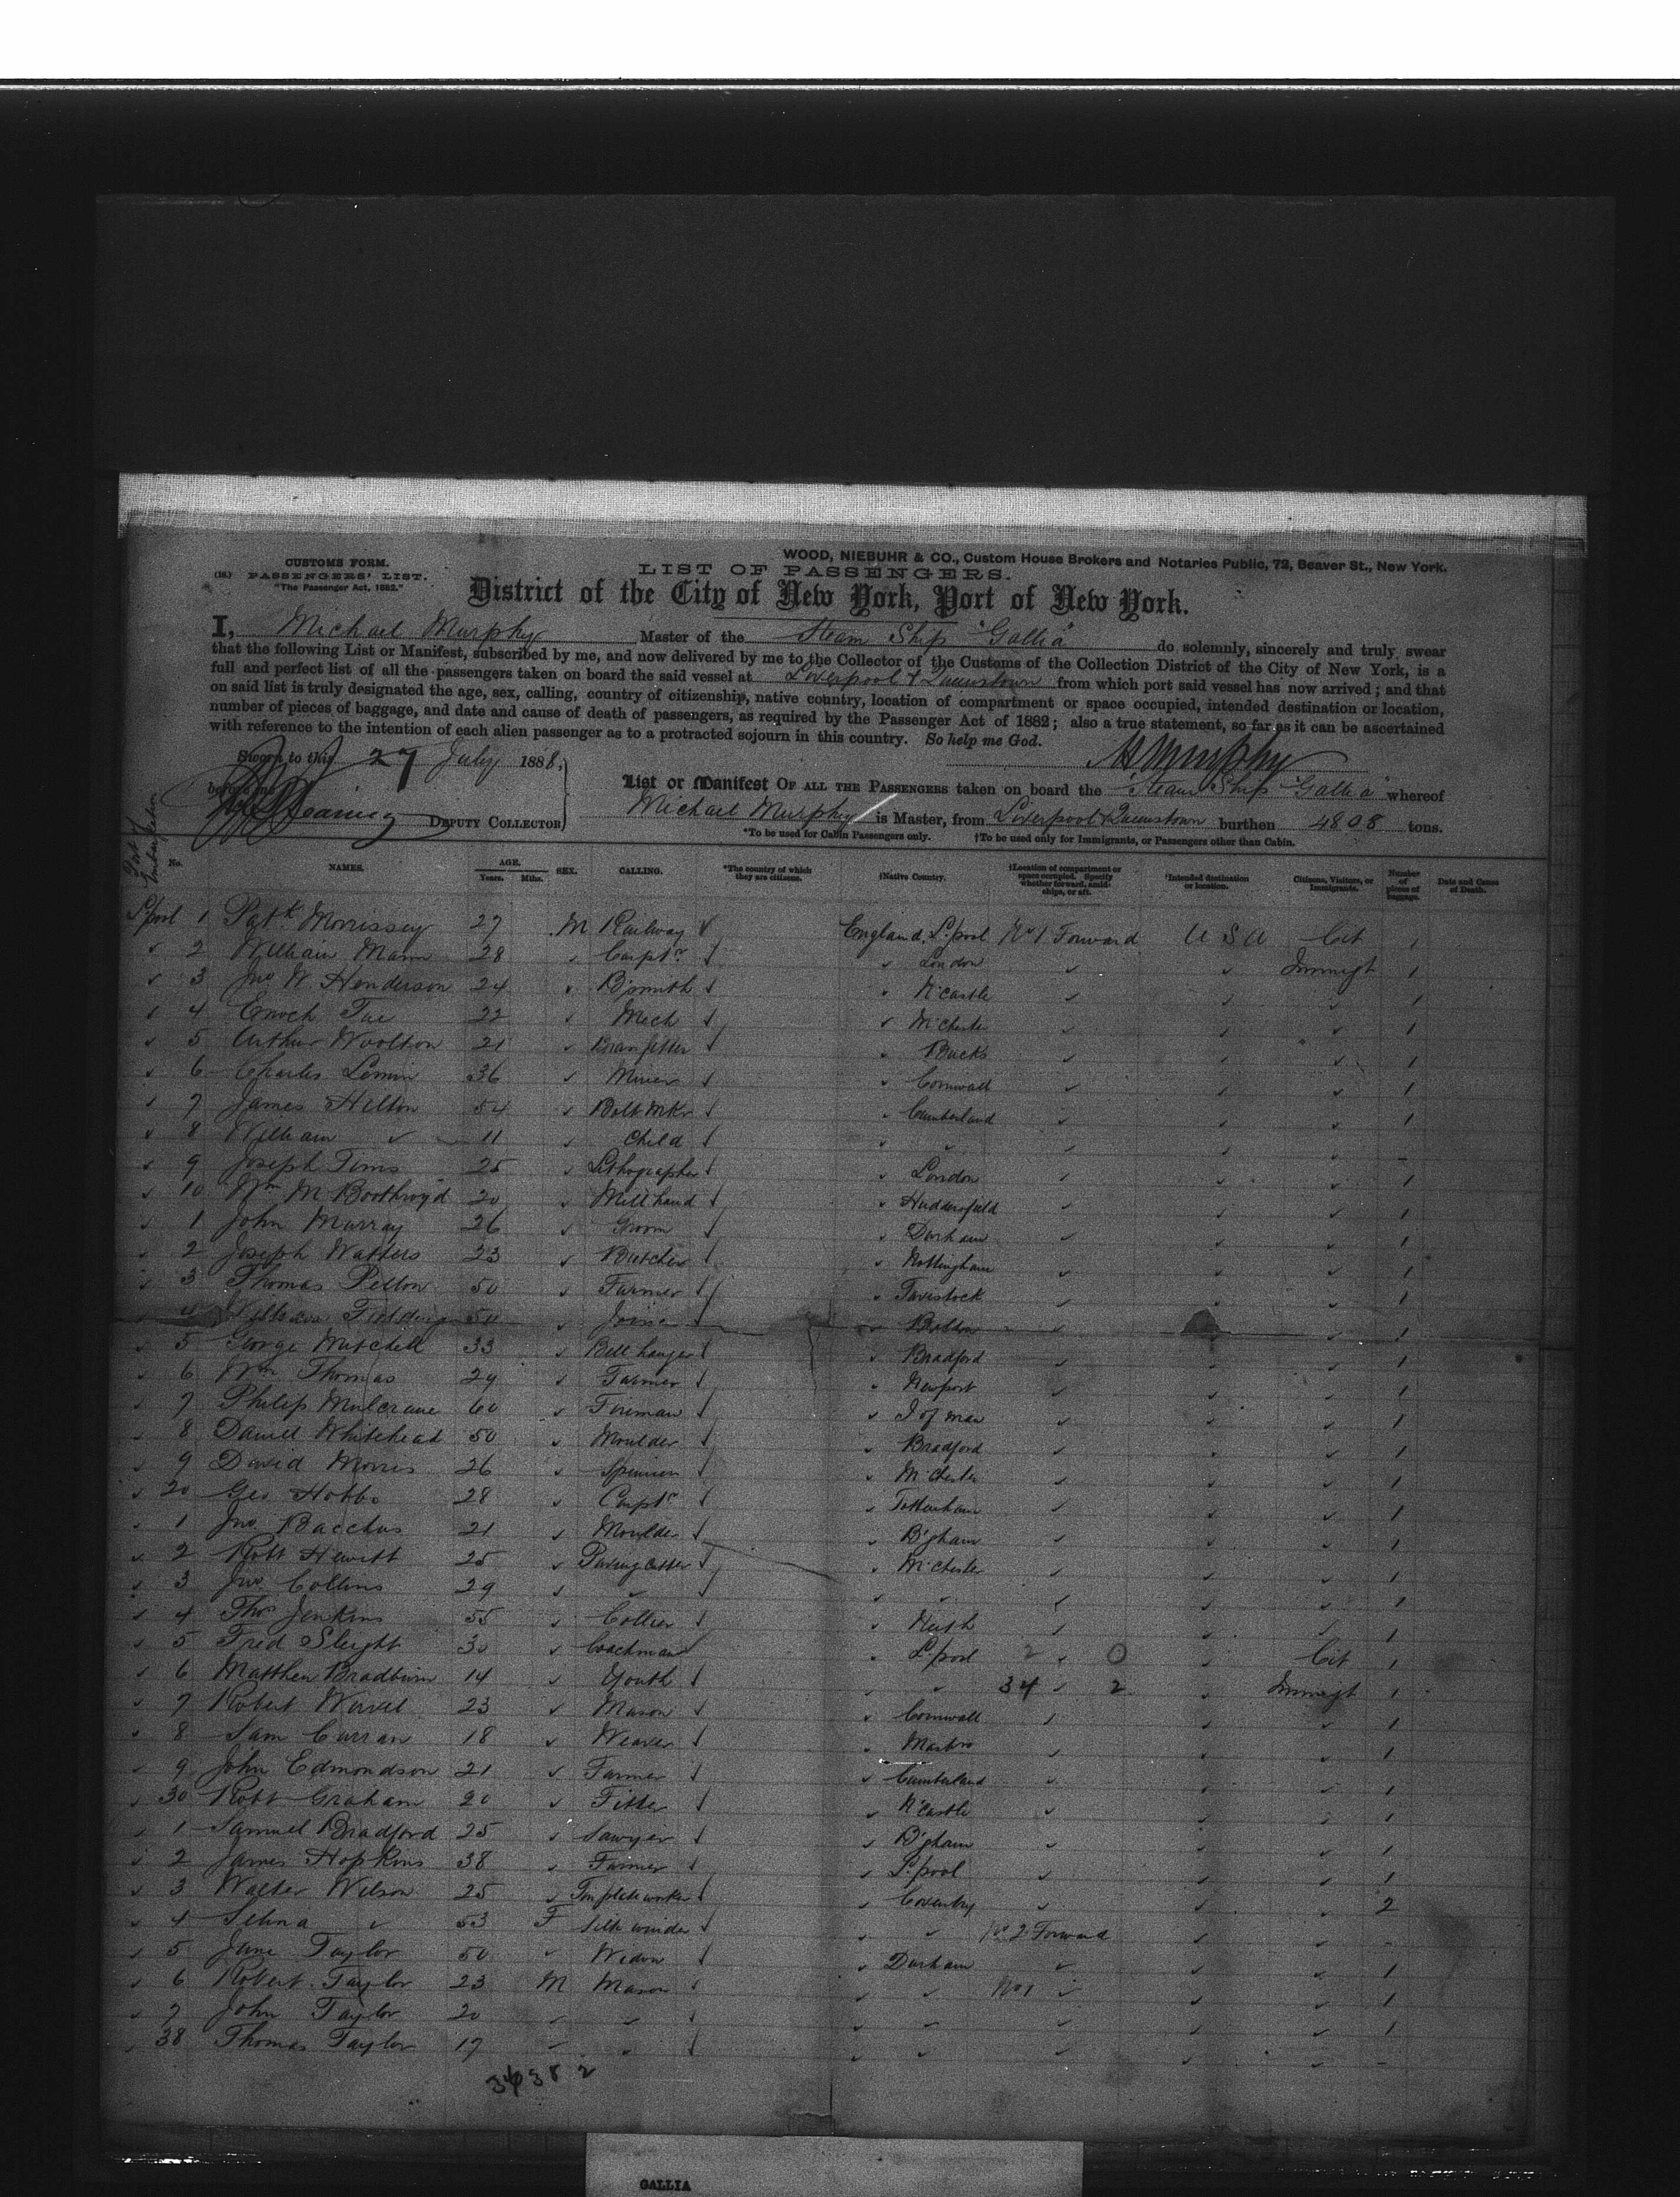 WOOD, NIEBUHR & CO., Custom House Brokers and Notaries Public, 72, Beaver St., New York.
CUSTOMS FORM.
PASSENGERS' LIST.
"The Passenger Act, 1882."
LIST OF PASSENGERS.
District of the City of New York, Port of New York.
I, Michael Murphy Master of the Steam Ship "Gallia" do solemnly, sincerely and truly swear
that the following List or Manifest, subscribed by me, and now delivered by me to the Collector of the Customs of the Collection District of the City of New York, is a
full and perfect list of all the passengers taken on board the said vessel at Liverpool & Queenstown from which port said vessel has now arrived; and that
on said list is truly designated the age, sex, calling, country of citizenship, native country, location of compartment or space occupied, intended destination or location,
number of pieces of baggage, and date and cause of death of passengers, as required by the Passenger Act of 1882; also a true statement, so far as it can be ascertained
with reference to the intention of each alien passenger as to a protracted sojourn in this country. So help me God.
Sworn to this 27 July 1888,
M Murphy
before me
DEPUTY COLLECTOR
List or Manifest OF ALL THE PASSENGERS taken on board the Steam Ship "Gallia" whereof
Michael Murphy is Master, from Liverpool & Queenstown burthen 4808 tons.
*To be used for Cabin Passengers only. †To be used only for Immigrants, or Passengers other than Cabin.
Port of Embarkation No. NAMES. AGE. Years. Mths. SEX. CALLING. *The country of which they are citizens. †Native Country. †Location of compartment or space occupied. Specify whether forward, amidships, or aft. †Intended destination or location. Citizens, Visitors, or Immigrants. Number of pieces of baggage. Date and Cause of Death.
L'pool 1 Patk Morrissey 27 M Railway England L'pool No 1 Forward U S A Cit 1
2 William Mann 28 Carptr London Immigt 1
3 Jno W. Henderson 24 B'smith N'castle 1
4 Enoch 22 Mech M'chester 1
5 Arthur Woolton 21 Bucks 1
6 Charles 36 Miner Cornwall 1
7 James Hilton 54 Bolt Mkr Cumberland 1
8 William 11 Child
9 Joseph Tims 25 Lithographer London 1
10 Wm M Boothroyd 20 Mill hand Huddersfield 1
1 John Murray 26 Groom Durham 1
2 Joseph Watters 23 Butcher Nottingham 1
3 Thomas Pellow 50 Farmer Tavistock 1
4 William Fielding Joiner Bolton 1
5 George Mitchell 33 Bell hanger Bradford 1
6 Wm Thomas 29 Farmer Newport 1
7 Philip Mulcrane 60 Foreman I of Man 1
8 Daniel Whitehead 50 Moulder Bradford 1
9 David Morris 26 M'chester 1
20 Geo Hobbs 28 Carptr Tottenham 1
1 Jno Bacchus 21 Moulder B'gham 1
2 Robt Hewitt 25 Paving cutter M'chester 1
3 Jno Collins 29 1
4 Thos Jenkins 55 Collier Neath 1
5 Fred Sleight 30 Coachman L'pool 2 0 Cit 1
6 Matthew Bradburn 14 Youth 34 2 Immigt 1
7 Robert 23 Mason Cornwall 1
8 Sam Curran 18 Weaver 1
9 John Edmondson 21 Farmer Cumberland 1
30 Robt Graham 20 Fitter N'castle 1
1 Samuel Bradford 25 Sawyer B'gham 1
2 James Hopkins 38 Farmer L'pool 1
3 Walter Wilson 25 Tinplate worker Coventry 2
4 Selina 53 F Silk winder No 2 Forward
5 Jane Taylor 50 Widow Durham 1
6 Robert Taylor 23 M Mason No 1 1
7 John Taylor 20 1
38 Thomas Taylor 17
38 2
GALLIA